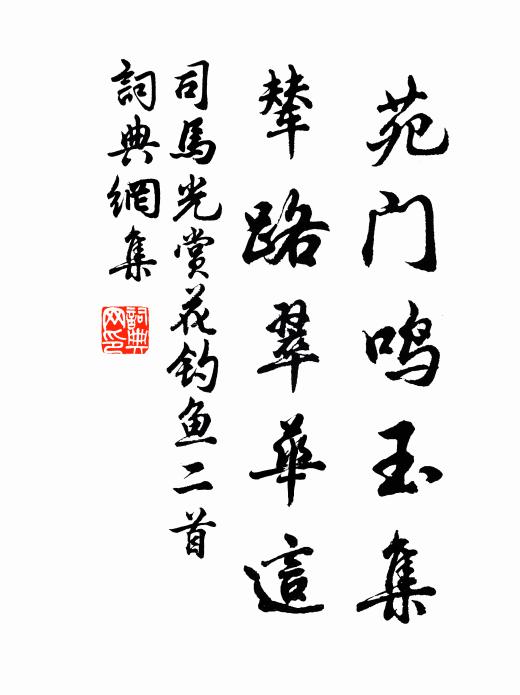 苑门鸣玉集
辇路翠華這
司馬光赏花钓鱼二首
詞典網集
詞典网印